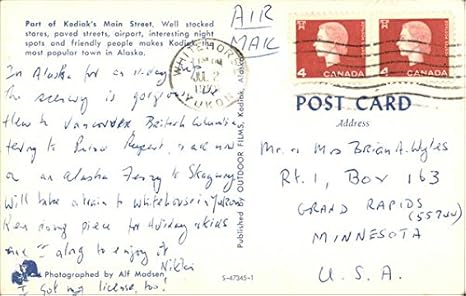 Part of Kodiak's Main Street. Well stocked
stores, paved streets, airport, interesting night
spots and friendly people makes Kodiak the
most popular town in Alaska.
AIR
MAIL
WHITEHORSE
YUKON
4 CANADA
4 CANADA
In Alaska for an 11-day
The scenery is gorgeous
flew to Vancouver British Columbia
ferry to Prince Rupert, & are now
on an Alaska Ferry to Skagway
Will take a train to Whitehorse in Yukon
Ken rising piece for Holiday & kids
are along to enjoy it
Nikki
Photographed by Alf Madsen
I got my license, too!
Published by OUTDOOR FILMS, Kodiak, Alaska
S-47345-1
POST CARD
Address
Mr. & Mrs Brian A. Wyles
Rt. 1, Box 163
GRAND RAPIDS
(55744)
MINNESOTA
U.S.A.